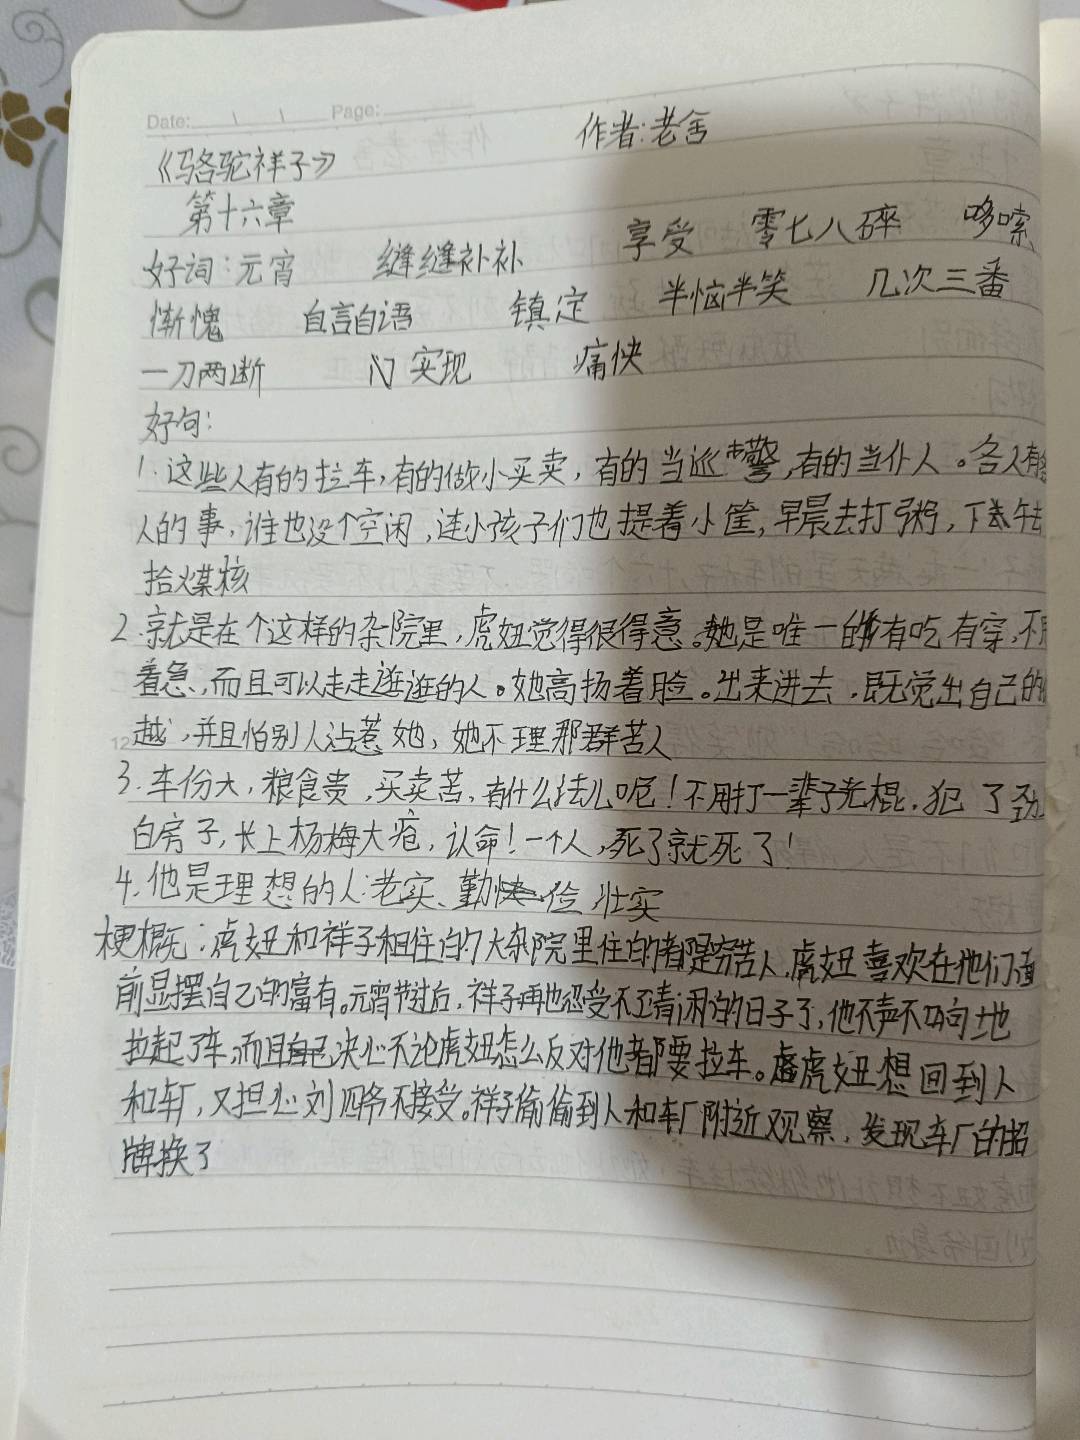 Date: Page:
作者:老舍
《骆驼祥子》
第十六章
好词:元宵 缝缝补补 享受 零七八碎 哆嗦
惭愧 自言自语 镇定 半恼半笑 几次三番
一刀两断 实现 痛快
好句:
1.这些人有的拉车,有的做小买卖,有的当巡警,有的当仆人。各人有各
人的事,谁也没个空闲,连小孩子们也提着小筐,早晨去打粥,下午去
拾煤核
2.就是在个这样的杂院里,虎妞觉得很得意。她是唯一的有吃有穿,不用
着急,而且可以走走逛逛的人。她高扬着脸。出来进去,既觉出自己的优
越,并且怕别人沾惹她,她不理那群苦人
3.车份大,粮食贵,买卖苦,有什么法儿呢!不用打一辈子光棍,犯了劲上
白房子,长上杨梅大疮,认命!一个人,死了就死了!
4.他是理想的人:老实、勤俭 壮实
梗概:虎妞和祥子租住的大杂院里住的都是穷苦人,虎妞喜欢在他们面
前显摆自己的富有。元宵节过后,祥子再也忍受不了清闲的日子了,他不声不响地
拉起了车,而且决心不论虎妞怎么反对他都要拉车。虎妞想回到人
和车厂,又担心刘四爷不接受。祥子偷偷到人和车厂附近观察,发现车厂的招
牌换了